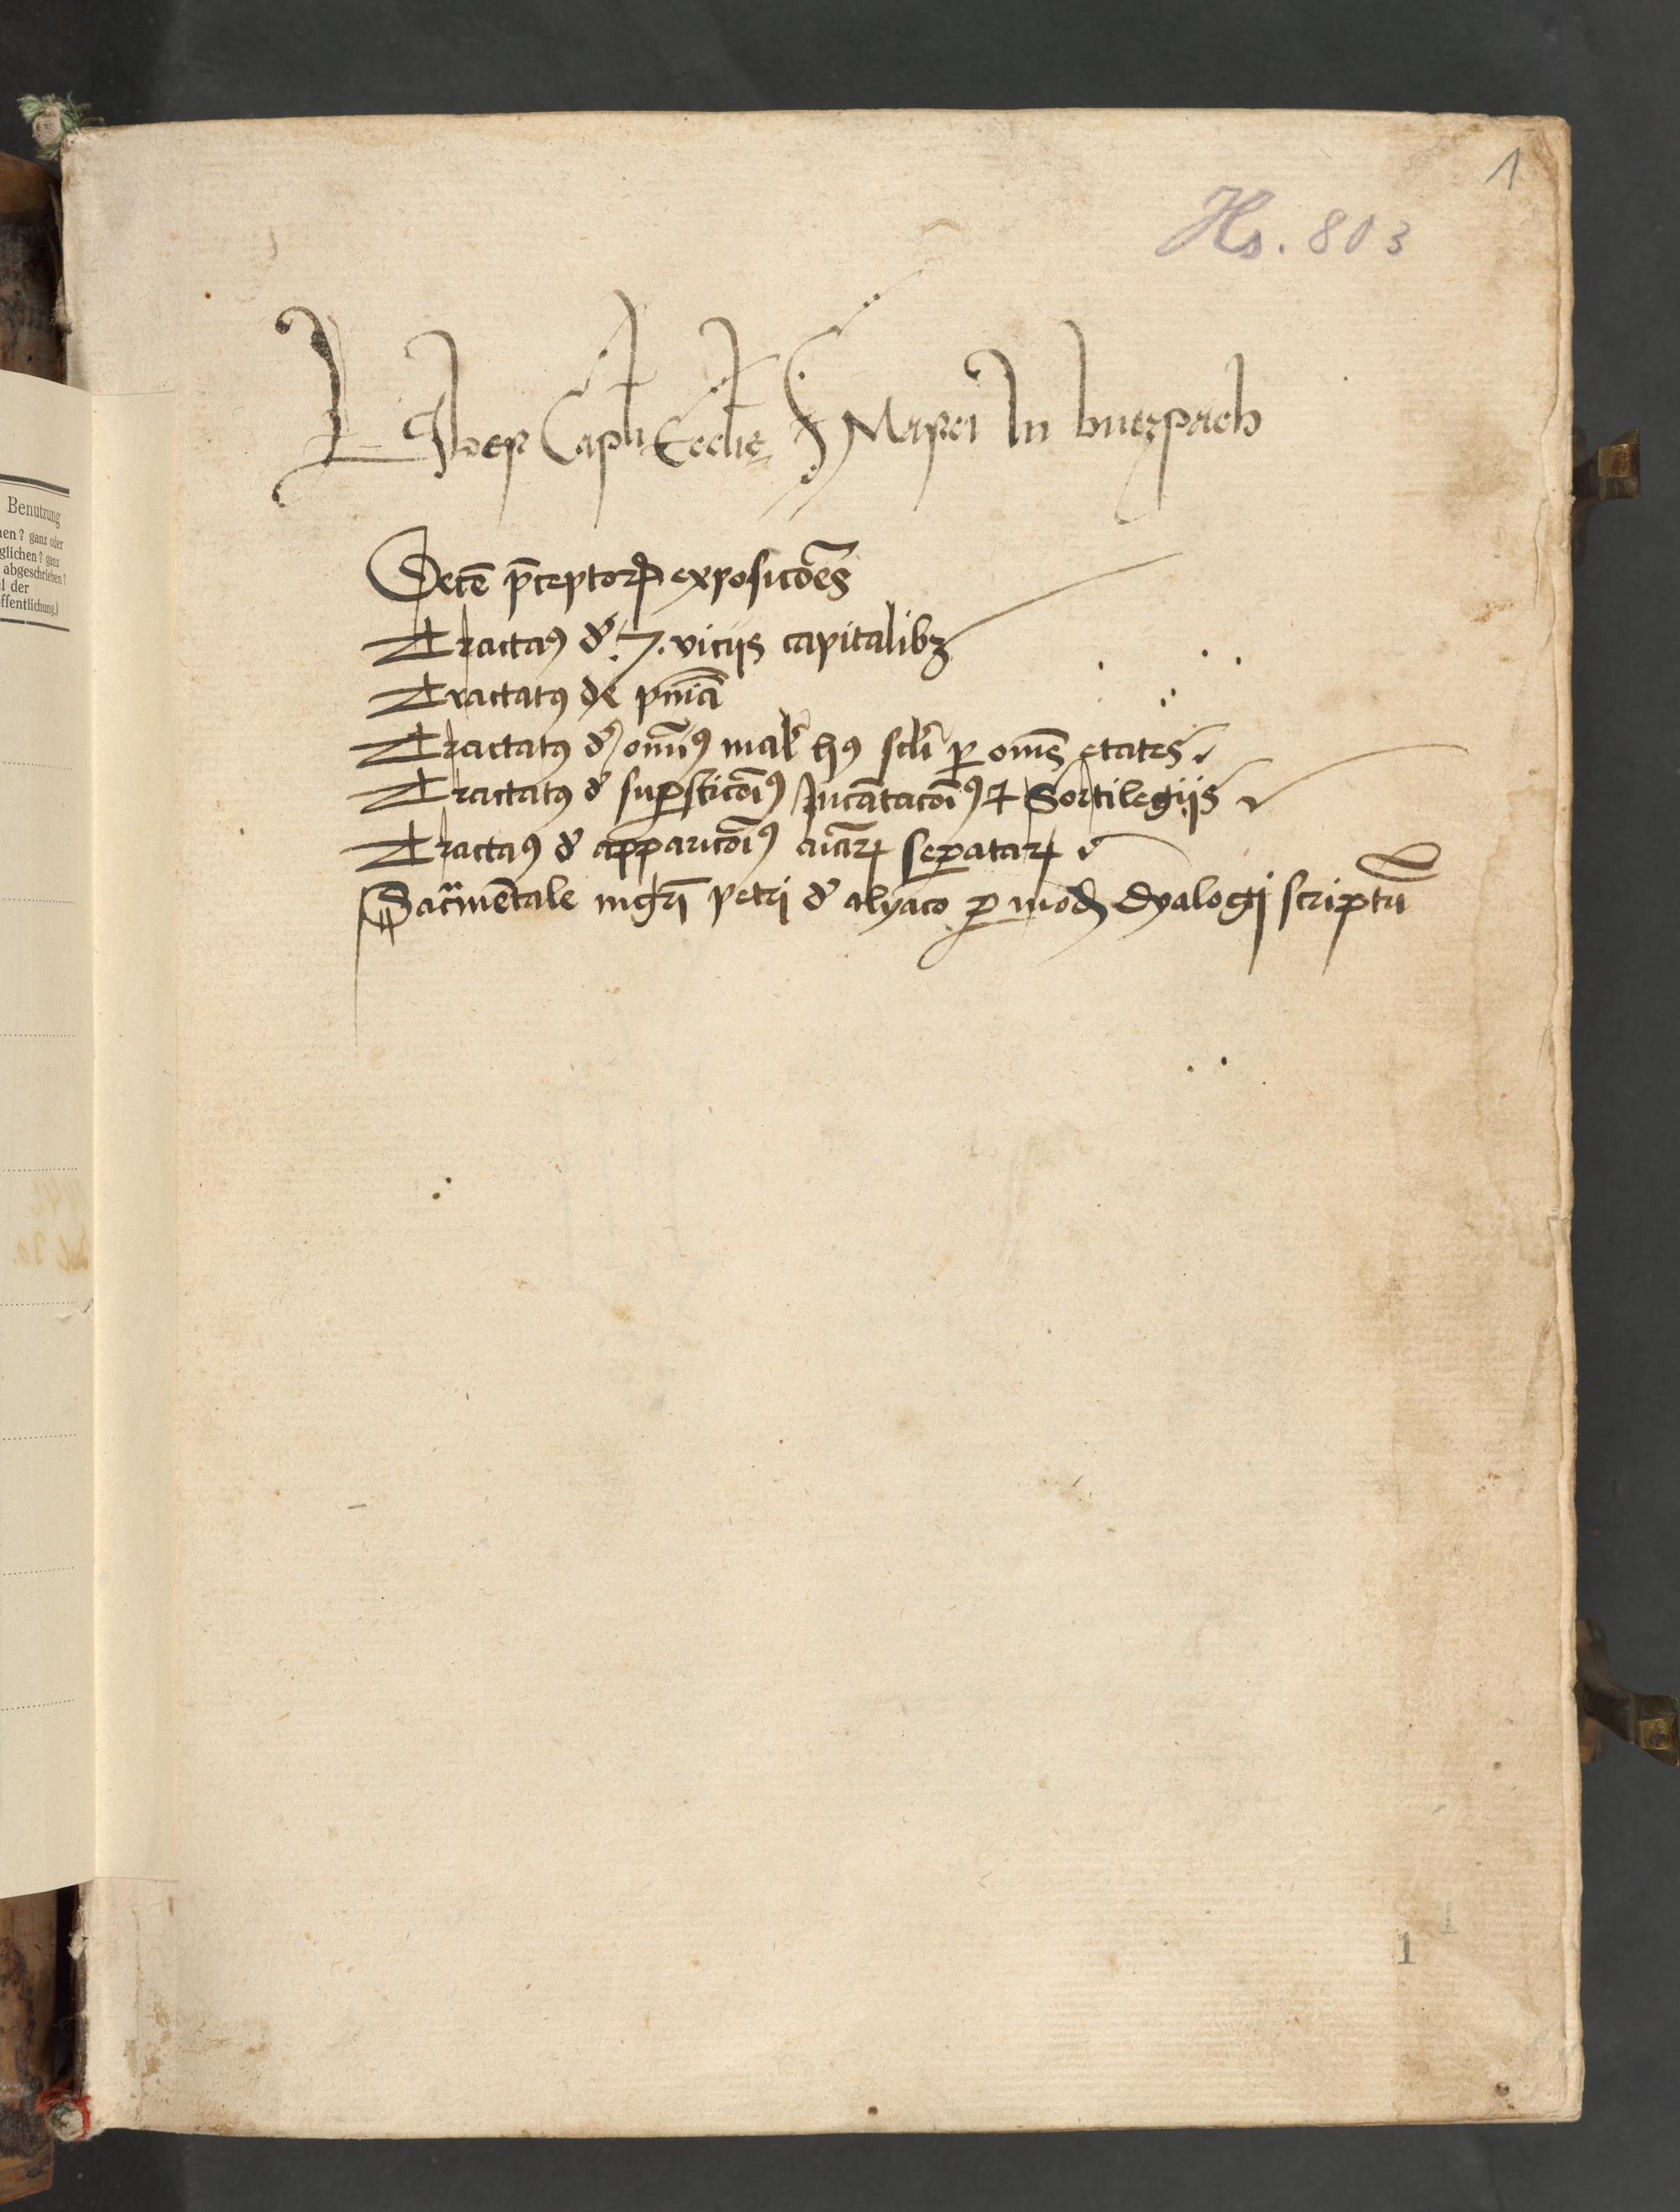 1
Hs. 803
Liber Capli Ecclie S Marci In buczpach
Decē p̄ceptoꝝ exposicōēs
Tractaꝰ de .7. vicijs capitalibꝫ
Tractatꝰ de pnīa
Tractatꝰ de omīꝰ mal' hꝰ scl'i ꝑ om̄s etates
Tractatꝰ de suꝑsticōīꝰ Incātacōīꝰ ⁊ Sortilegijs
Tractaꝰ de apparicōīꝰ aīaꝝ seꝑataꝝ
Sacͣmētale mgr̄i petri de alyaco ꝑ modū dyalogi scriptū
1
Benutzung
nen? ganz oder
glichen? ganz
abgeschrieben?
l der
ffentlichung.)